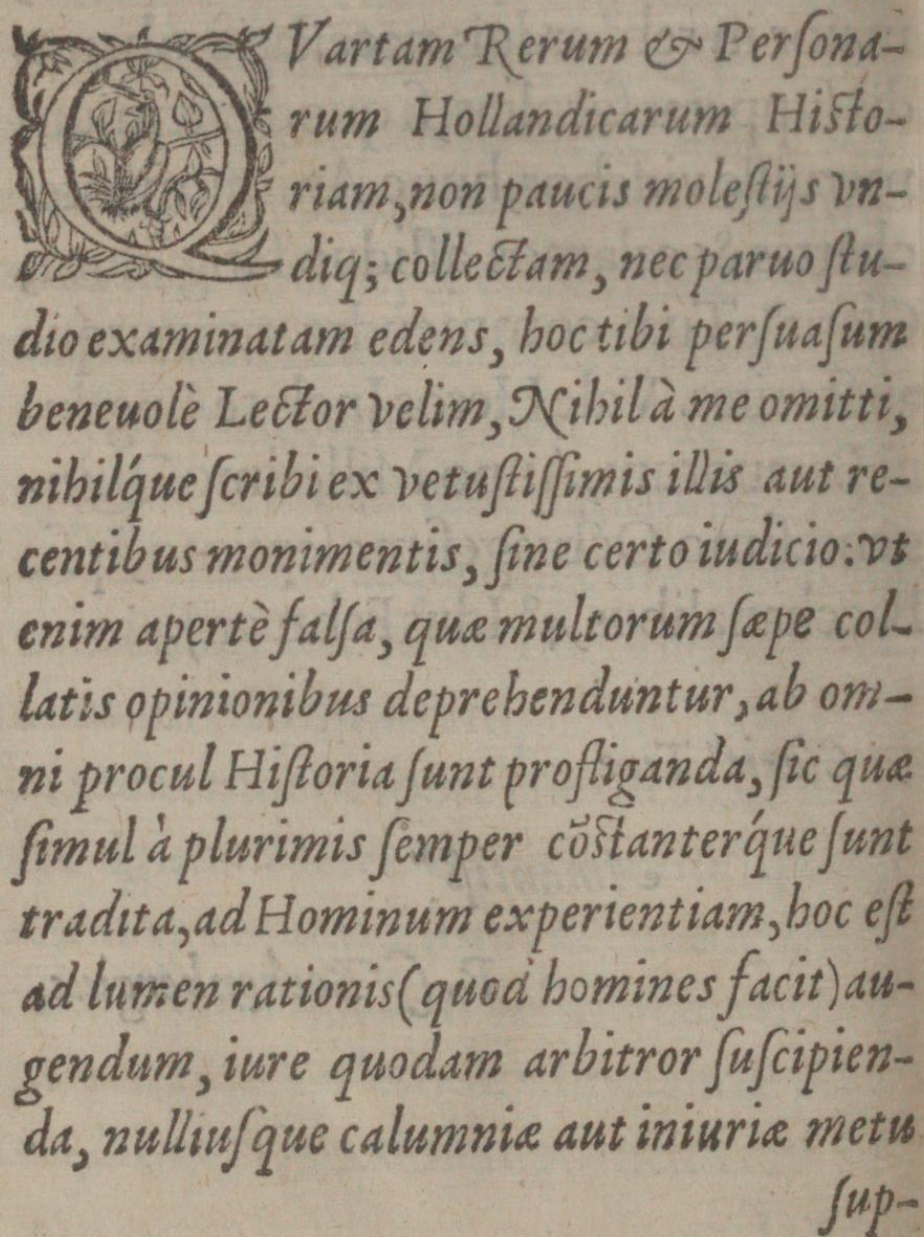 QVartam Rerum & Perſona-
rum Hollandicarum Hiſto-
riam, non paucis moleſtijs vn-
diq; collectam, nec paruo ſtu-
dio examinatam edens, hoc tibi perſuaſum
beneuolè Lector velim, Nihil à me omitti,
nihilq́ue ſcribi ex vetuſtiſſimis illis aut re-
centibus monimentis, ſine certo iudicio: vt
enim apertè falſa, quæ multorum ſæpe col-
latis opinionibus deprehenduntur, ab om-
ni procul Hiſtoria ſunt profliganda, ſic quæ
ſimul à plurimis ſemper cõſtanterq́ue ſunt
tradita, ad Hominum experientiam, hoc eſt
ad lumen rationis (quod homines facit) au-
gendum, iure quodam arbitror ſuſcipien-
da, nulliuſque calumniæ aut iniuriæ metu
ſup-